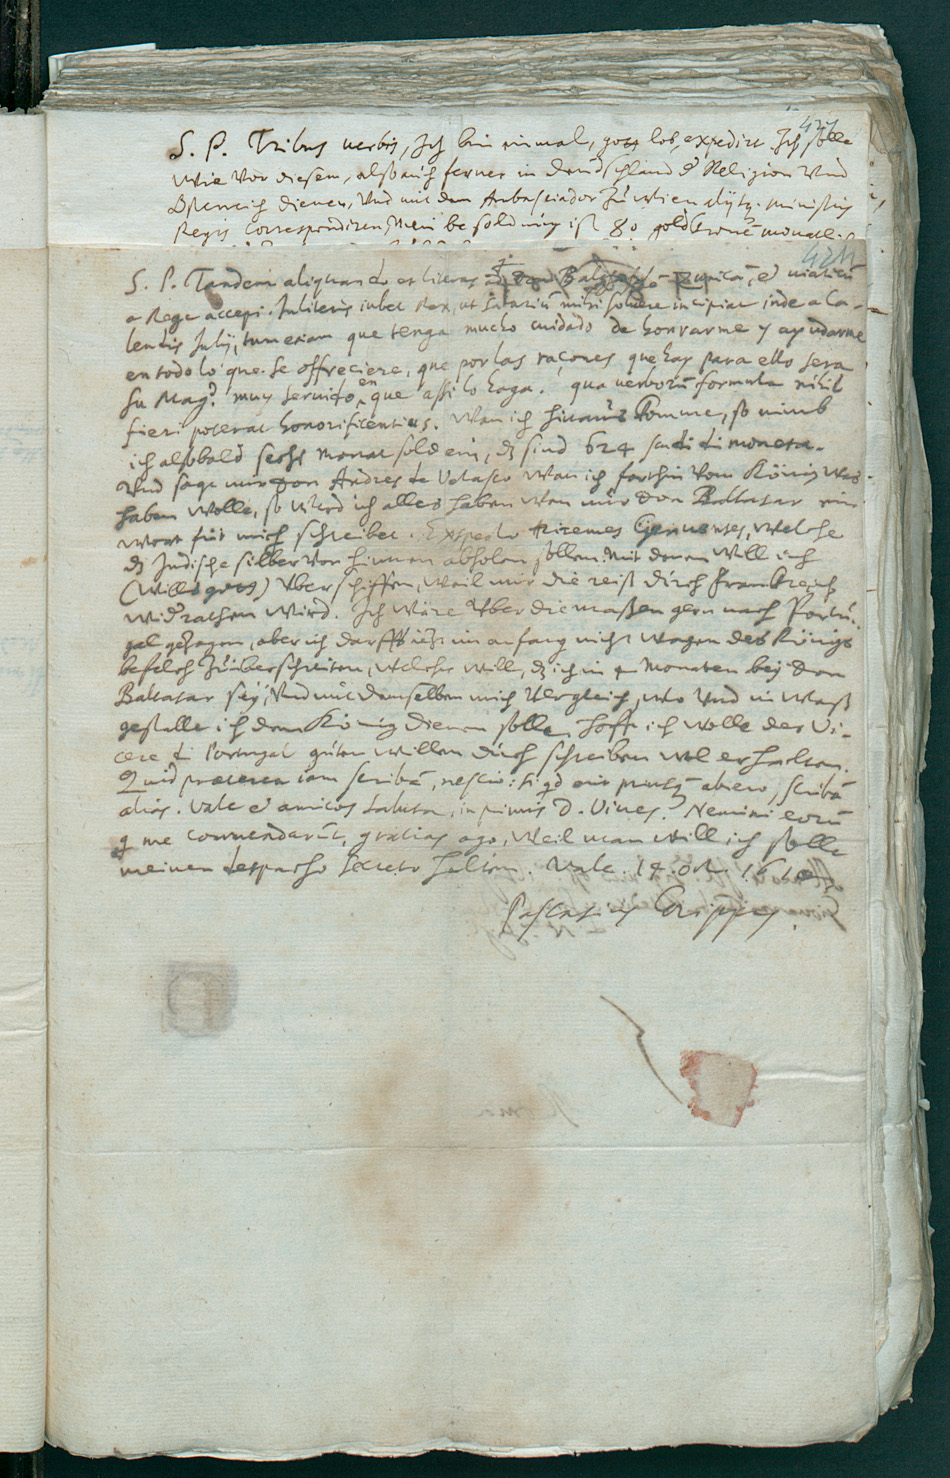 427
S. P. Tribus verbis, Ich bin einmal, gott lob, expedirt. Ich solle
wie vor diesem, also auch ferner in Deudschland d' Religion vnd
Osterreich dienen, vnd mit dem Ambasciador zu Wien
Regis correspondiren, Mein besoldung ist 80 goldkronē monatli
424
S. P. Tandem aliquando et literas Balthasarē Zunicā, et viaticū
a Rege accepi. In literis iubet Rex, ut salariū mihi solvere incipiat inde a Ca-
lendis Julij, tum etiam que tenga mucho cuidado de honrarme y ayudarme
en todo lo que se offreciere, que por las raçones que hay para ello sera
su Magd. muy servido en que assi lo haga. qua verborū formula nihil
fieri poterat honorificentius. Wan ich hinauß komme, so nimb
ich alsobald sechs monat sold ein, dz sind 624 scudi di moneta.
Vnd sagt mir Don Andres de Velasco wan ich forthin vom König was
haben wolle, so würd ich alles haben wan mir Don Baltasar ein
wort für mich schreibet. Expecto triremes Genuenses, welche
dz Indische silber von hinnen abholen sollen. Mit denen will ich
(Wills gott) vberschiffen, weil mir die reiß durch Franckreich
widrathen wird. Ich wäre vber die maßen gern nach Portu-
gal gezogen, aber ich darff ietzt im anfang nicht wagen des Königs
befelch zu überschreiten, welcher will, dz ich in 4 Monaten bey Don
Baltasar sey, Vnd mit demselben mich vergleich, wo vnd in waß
gestallt ich dem König dienen solle. Hoff ich wolle des Vi-
cere di Portugal guten willen durch schreiben wol erhalten.
Quid praeterea iam scribā, nescio: si qd

alias. Vale et amicos saluta, in primis D. Vives. Nemini eorū
q me commendarūt, gratias ago, Weil man will ich solle
meinen despacho secreto halten. Vale. 14. Oct. 1610